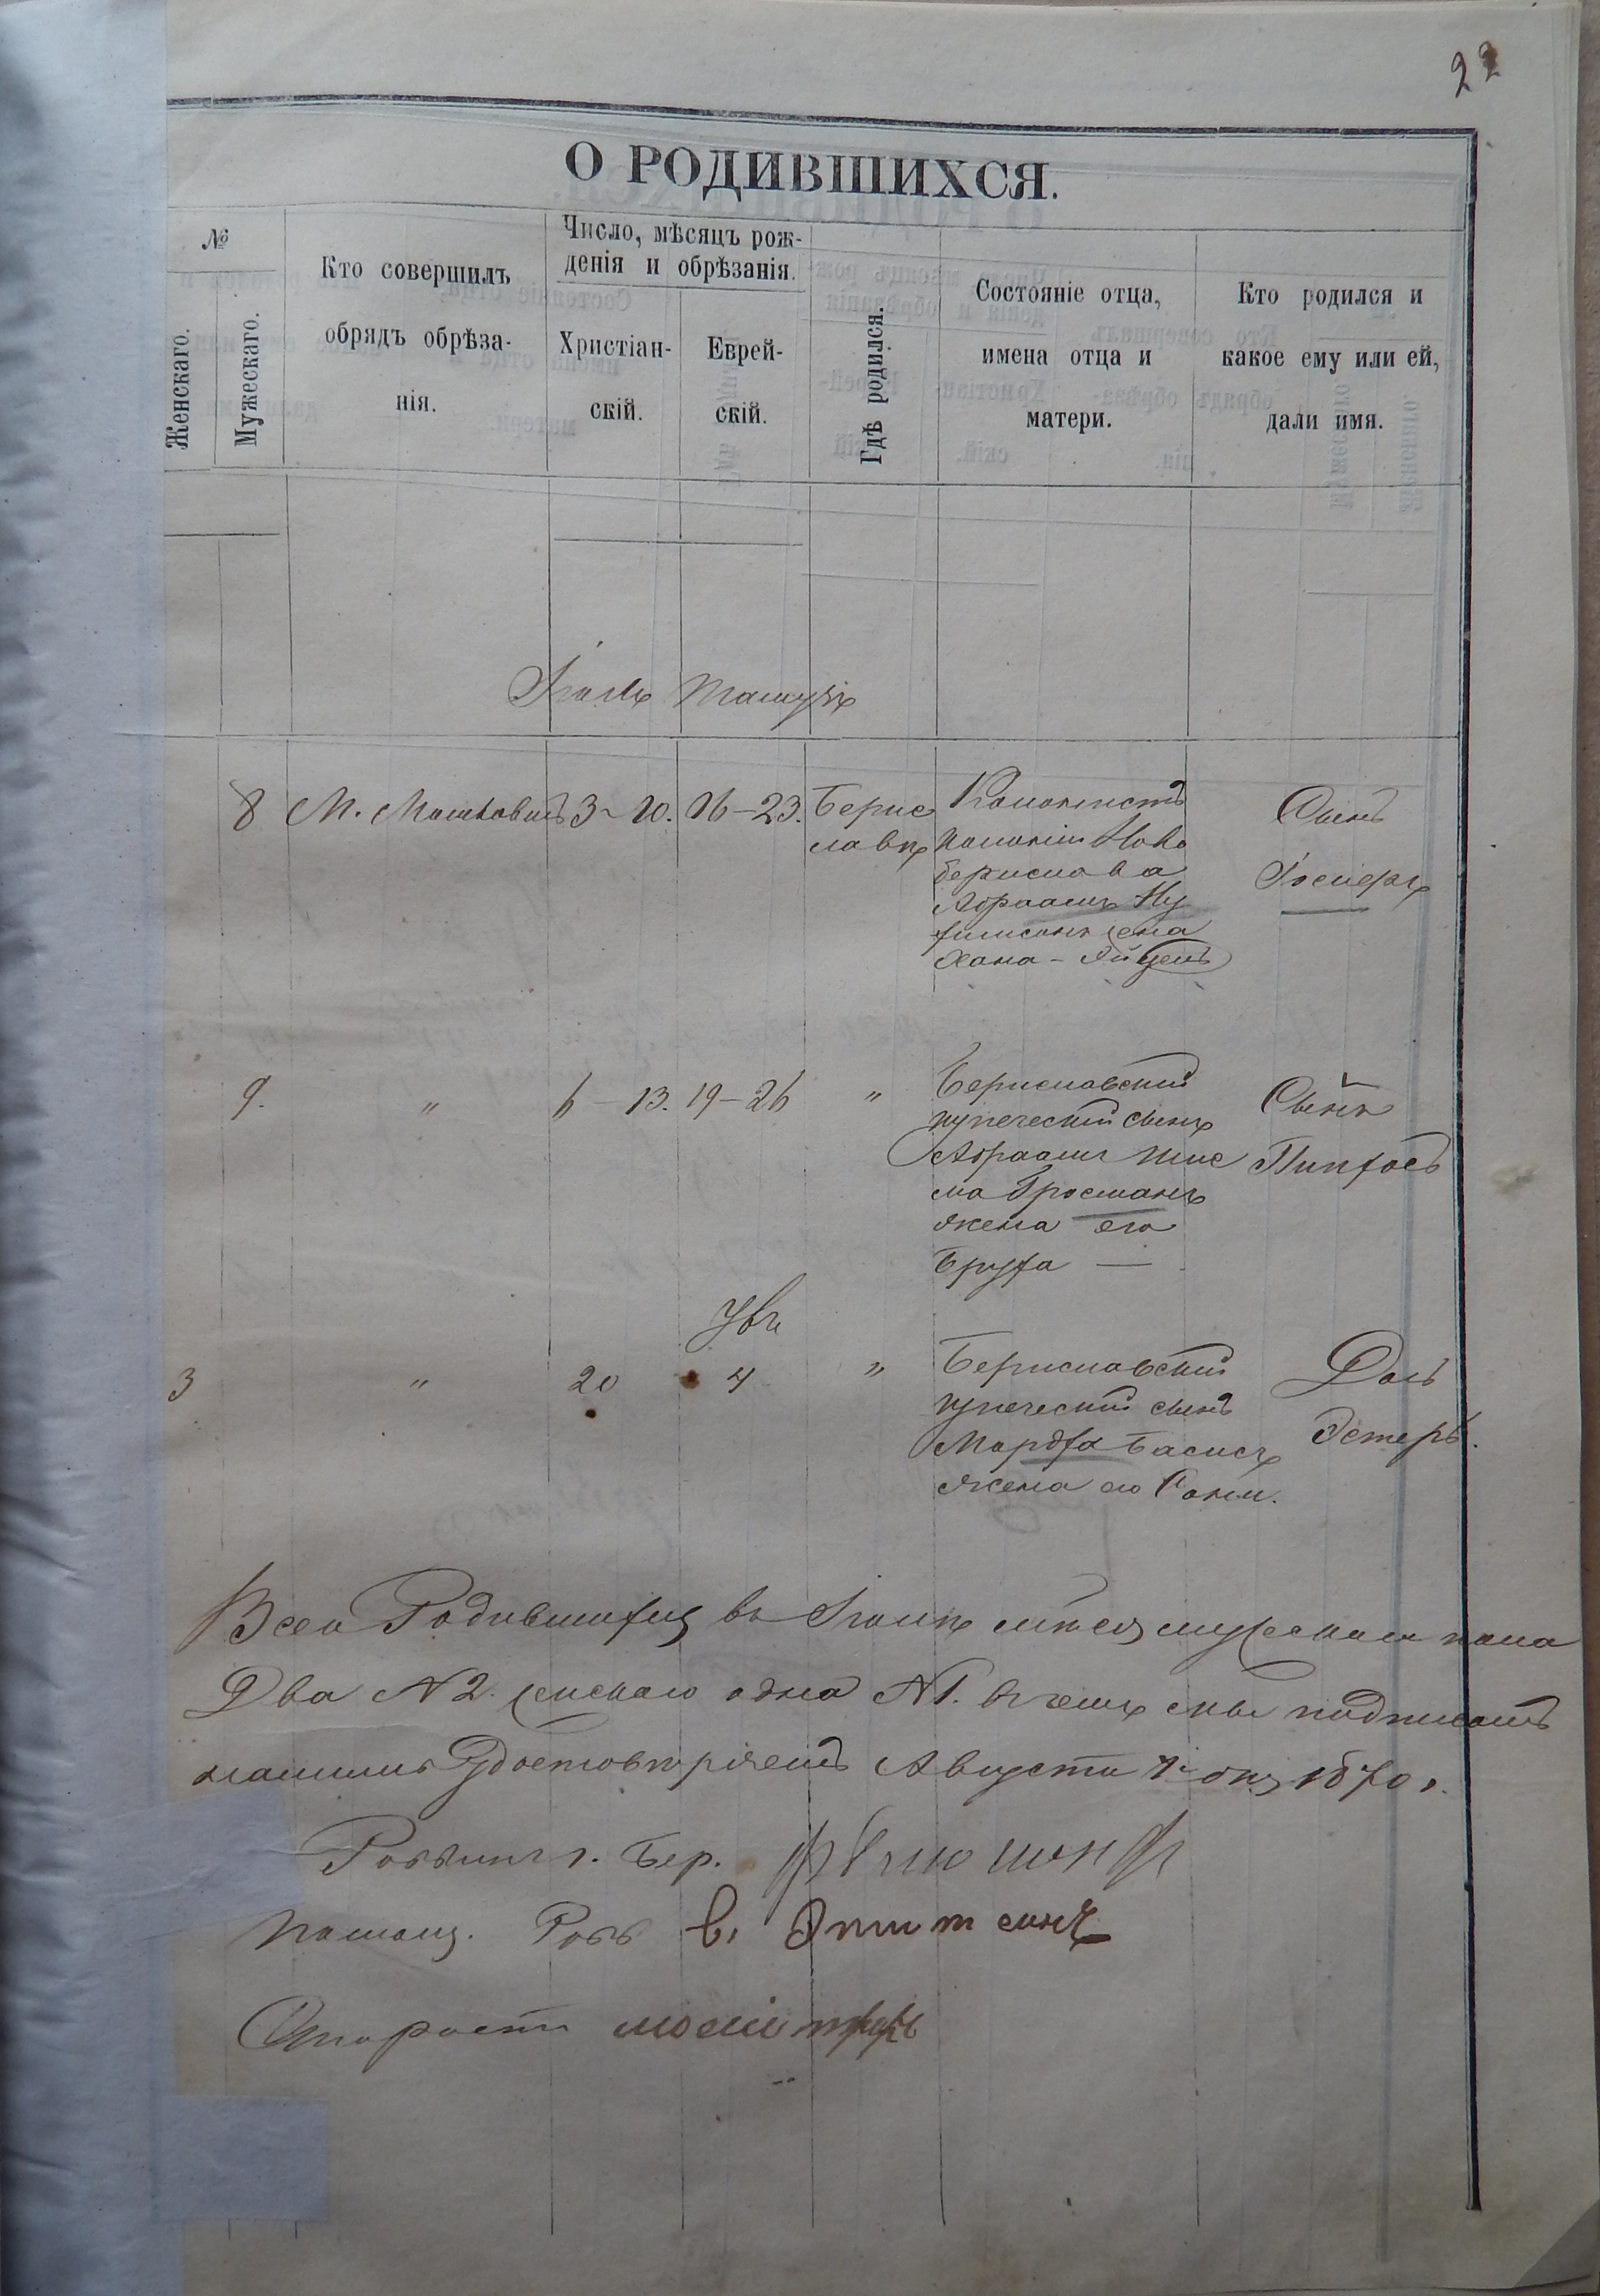 22
О РОДИВШИХСЯ.
№
Женскаго.
Мужескаго.
Кто совершилъ
обрядъ обрѣза-
нія.
Число, мѣсяцъ рож-
денія и обрѣзанія.
Христіан-
скій.
Еврей-
скій.
Гдѣ родился.
Состояніе отца,
имена отца и
матери.
Кто родился и
какое ему или ей,
дали имя.
Іюль Тамузъ
8 М. Мошковичъ 3-10. 16-23.
Берис
лавѣ
Колонистъ
колоніи Ново
берислава
Абраамъ
жена
Хана -
Сынъ
Іосифъ
9. " 6-13. 19-26 "
Бериславскій
купеческій сынъ
Абраамъ Шле
ма Гросманъ
жена его
Бруха —
Сынъ
Пинхосъ
Увъ
3 " 20 4 "
Бериславскій
купеческій сынъ
Мордха Басисъ
жена его Соня.
Дочь
Эстеръ.
Всего Родившихся въ Іюлѣ м-цѣ мужескаго пола
Два №2. женскаго одна №1. въ чемъ мы подписомъ
нашимъ Удостовѣряемъ Августа 1 дня 1870 г.
Раввинъ г. Бер.
Помощ. Рав. В.
Староста